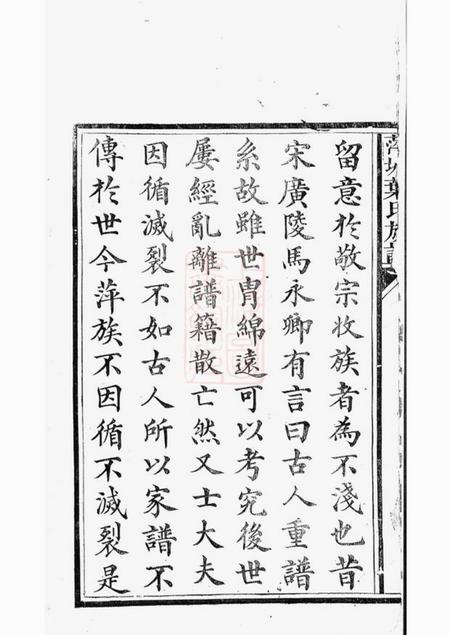 萍城葉氏族譜
留意於敬宗收族者為不淺也昔
宋廣陵馬永卿有言曰古人重譜
系故雖世胄綿遠可以考究後世
屢經亂離譜籍散亡然又士大夫
因循滅裂不如古人所以家譜不
傳於世今萍族不因循不滅裂是